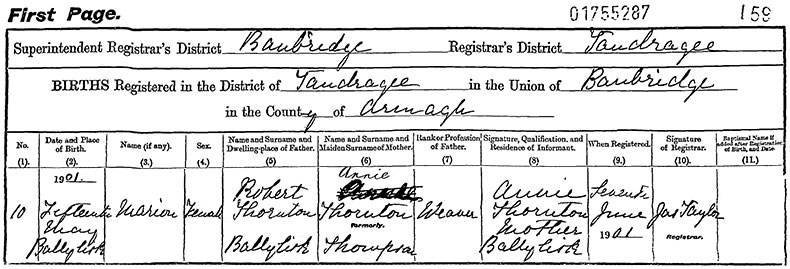 First Page. 01755287 159
Superintendent Registrar's District Banbridge Registrar's District Tandragee
BIRTHS Registered in the District of Tandragee in the Union of Banbridge
in the County of Armagh
No. (1). Date and Place of Birth. (2). Name (if any). (3.) Sex. (4.) Name and Surname and Dwelling-place of Father. (5) Name and Surname and Maiden Surname of Mother. (6) Rank or Profession of Father. (7) Signature, Qualification, and Residence of Informant. (8) When Registered. (9.) Signature of Registrar. (10.) Baptismal Name if added after Registration of Birth, and Date (11.)
1901. Annie
Robert Annie Seventh
10 Fifteenth Marion Female Thornton Thornton Weaver Thornton June Jas Taylor
May formerly. Mother Registrar.
Ballylisk Ballylisk Thompson Ballylisk 1901